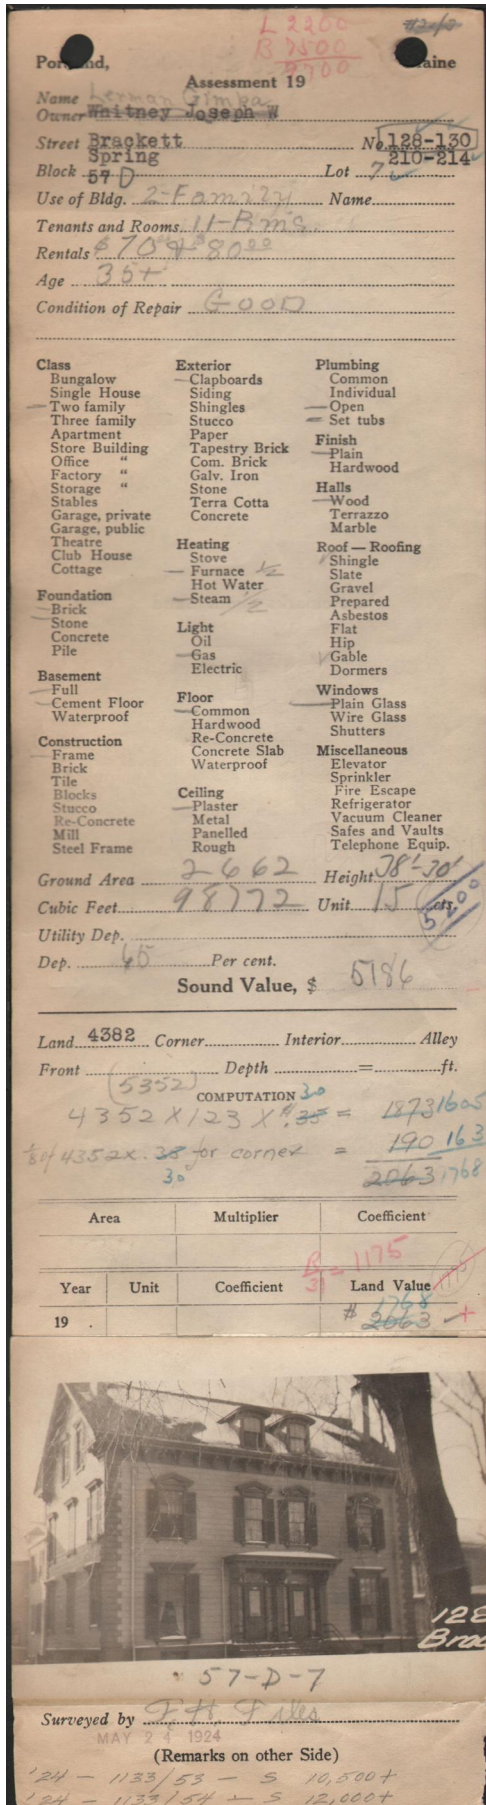 L 2200
B 7500
9700
Portland, Maine
Assessment 19
Name Lerman Gimpa
Owner Whitney Joseph W
Street Brackett No. 128-130
Spring 210-214
Block 57 D Lot 7
Use of Bldg. 2-Family Name
Tenants and Rooms 11-Rms.
Rentals $70 + $80.00
Age 35+
Condition of Repair GOOD
Class
Bungalow
Single House
Two family
Three family
Apartment
Store Building
Office "
Factory "
Storage "
Stables
Garage, private
Garage, public
Theatre
Club House
Cottage
Foundation
Brick
Stone
Concrete
Pile
Basement
Full
Cement Floor
Waterproof
Construction
Frame
Brick
Tile
Blocks
Stucco
Re-Concrete
Mill
Steel Frame
Exterior
Clapboards
Siding
Shingles
Stucco
Paper
Tapestry Brick
Com. Brick
Galv. Iron
Stone
Terra Cotta
Concrete
Heating
Stove
Furnace 1/2
Hot Water
Steam 1/2
Light
Oil
Gas
Electric
Floor
Common
Hardwood
Re-Concrete
Concrete Slab
Waterproof
Ceiling
Plaster
Metal
Panelled
Rough
Plumbing
Common
Individual
Open
Set tubs
Finish
Plain
Hardwood
Halls
Wood
Terrazzo
Marble
Roof — Roofing
Shingle
Slate
Gravel
Prepared
Asbestos
Flat
Hip
Gable
Dormers
Windows
Plain Glass
Wire Glass
Shutters
Miscellaneous
Elevator
Sprinkler
Fire Escape
Refrigerator
Vacuum Cleaner
Safes and Vaults
Telephone Equip.
Ground Area 2662 Height 38'-30'
Cubic Feet 98772 Unit 15 cts.
5200
Utility Dep.
Dep. 65 Per cent.
Sound Value, $ 5186
Land 4382 Corner Interior Alley
Front Depth = ft.
(5352)
COMPUTATION 30
4352 X 123 X $.35 = 1873 1605
1/8 of 4352 X .38 for corner = 190 163
30 2063 1768
Area Multiplier Coefficient
= 1175
Year Unit Coefficient Land Value
1768
19 . $ 2063 +
128
Brac
57-D-7
Surveyed by F. H. Files
MAY 24 1924
(Remarks on other Side)
'24 - 1133/53 - S 10,500+
'24 - 1133/54 - S 12,000+